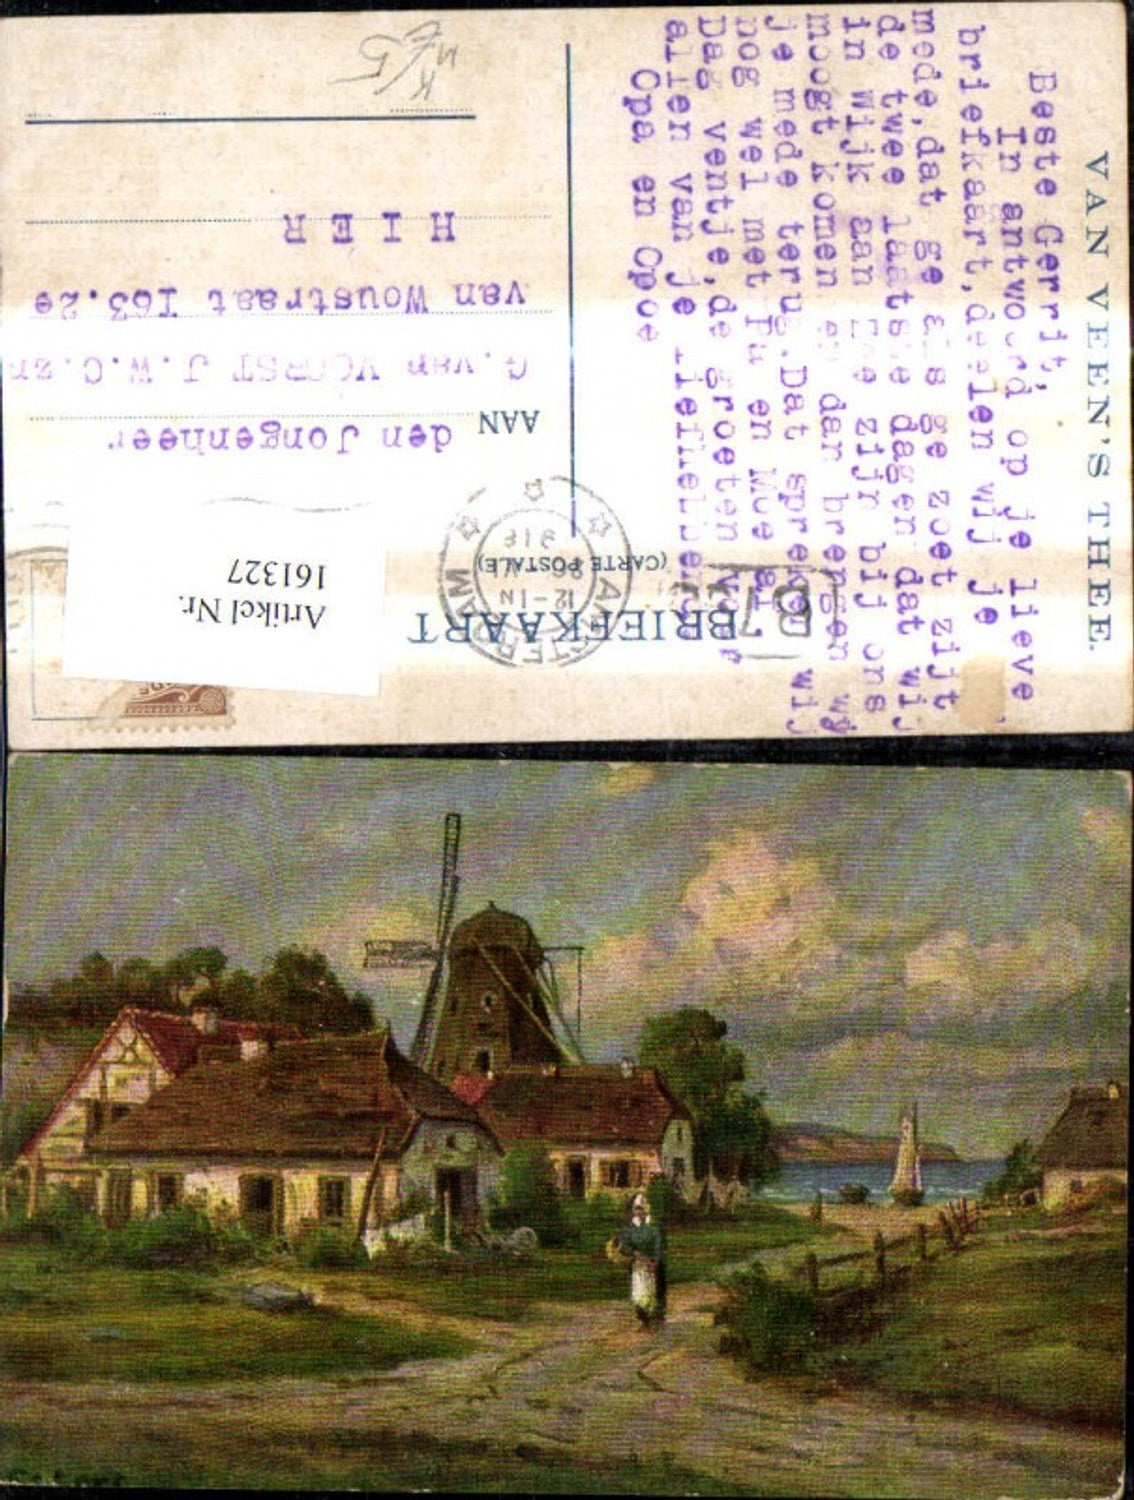 VAN VEEN'S THEE.
Beste Gerrit,
In antwoord op je lieve
briefkaart, deelen wij je
mede, dat ge als ge zoet zijt
de twee laatste dagen dat wij
in Wijk aan Zee zijn bij ons
moogt komen en dan brengen wij
je mede terug. Dat spreken wij
nog wel met Pa en Moe af.
Dag ventje, de groeten van
allen van je liefhebbende
Opa en Opoe
BRIEFKAART
(CARTE POSTALE)
AMSTERDAM
12-1N
AAN
den Jongenheer
G. van VOORST J.W.C.zn
van Woustraat I63.2e
HIER
Artikel Nr.
161327